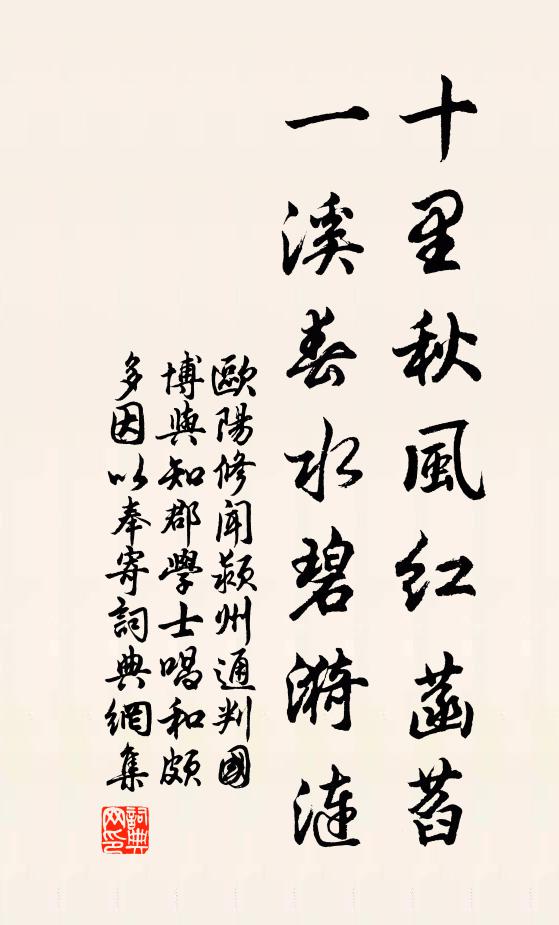 十里秋風紅菡萏
一溪春水碧漪漣
歐陽修聞潁州通判國
博與知郡學士唱和頗
多因以奉寄詞典網集
詞典
網印